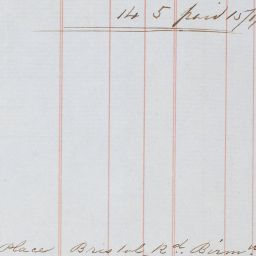 14 5 paid 15/
Place Bristol Rd. Birm